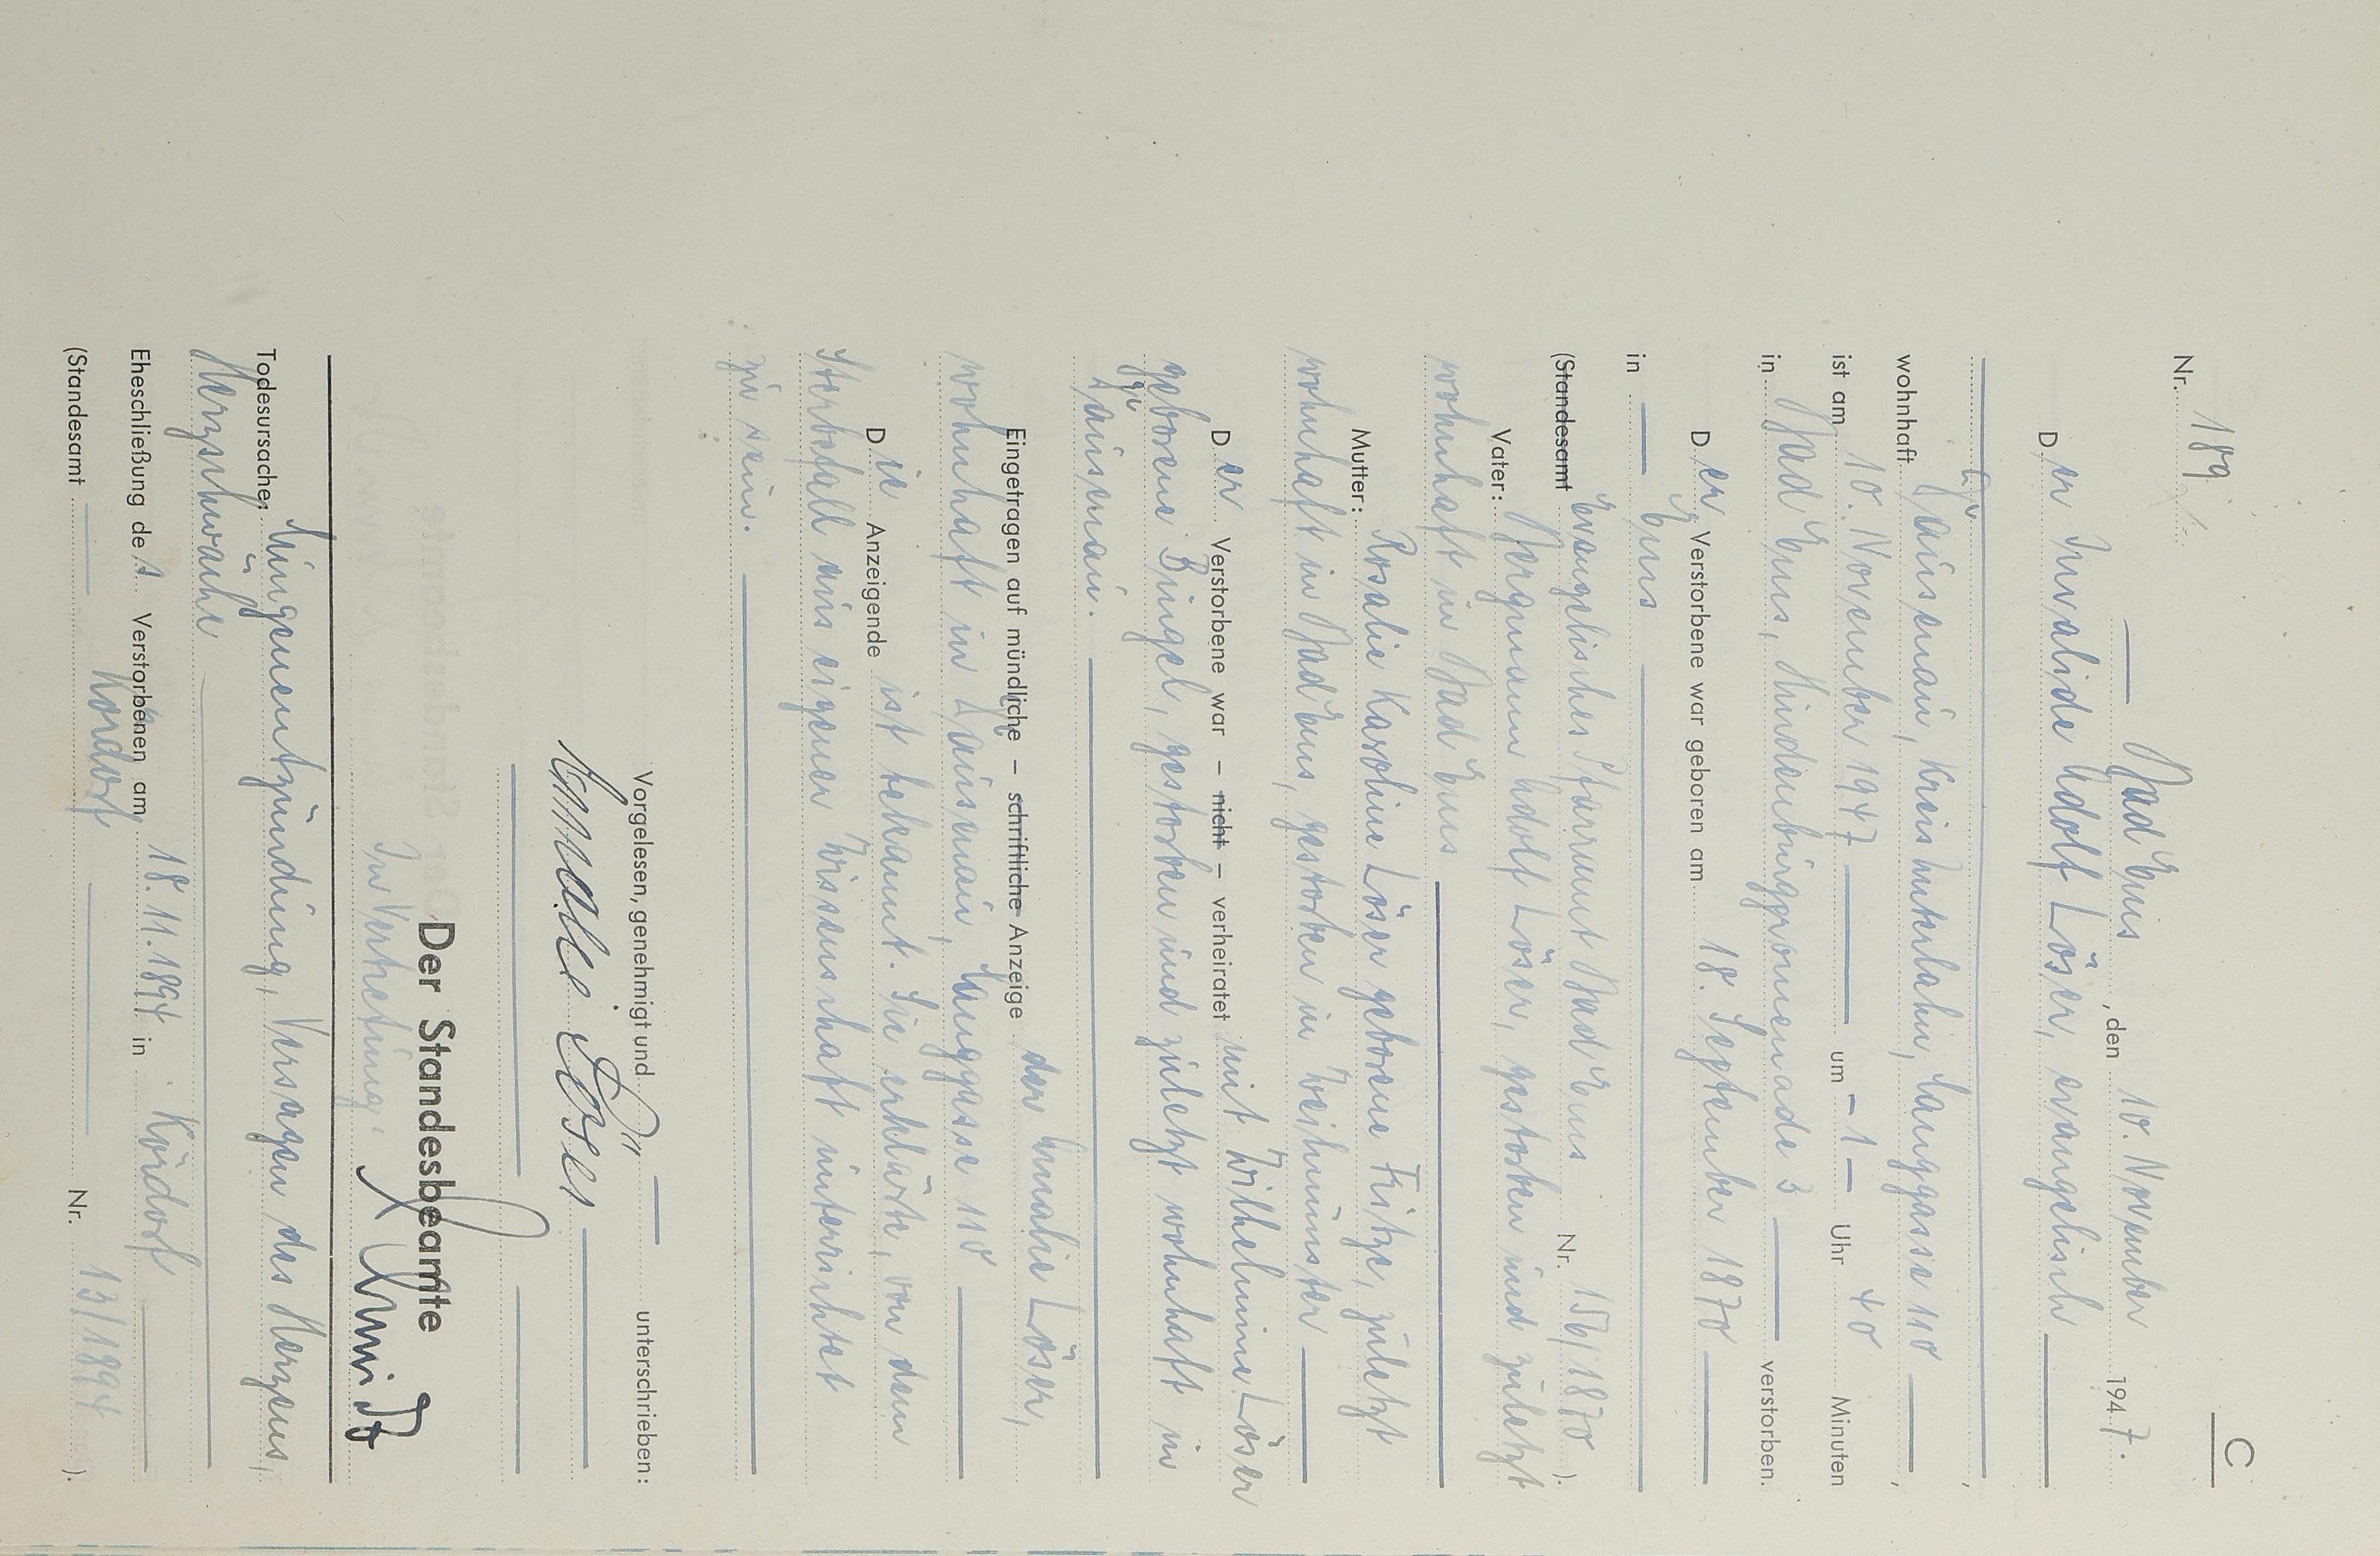 C
Nr. 189
Bad Ems, den 10. November 1947.
Der Invalide Adolf Löser, evangelisch
wohnhaft Dausenau, Kreis Unterlahn, Langgasse 110,
ist am 10. November 1947 um - 1 - Uhr 40 Minuten
in Bad Ems, Hindenburgpromenade 3 verstorben.
Der Verstorbene war geboren am 18. September 1870
in Ems
(Standesamt Evangelisches Pfarramt Bad Ems Nr. 156/1870).
Vater: Bergmann Adolf Löser, gestorben und zuletzt
wohnhaft in Bad Ems
Mutter: Rosalie Karoline Löser geborene Fritze, zuletzt
wohnhaft in Bad Ems, gestorben in Weilmünster
Der Verstorbene war – nicht – verheiratet mit Wilhelmine Löser
geborene Bingel, gestorben und zuletzt wohnhaft in
Dausenau.
Eingetragen auf mündliche – schriftliche Anzeige der Amalie Löser,
wohnhaft in Dausenau, Langgasse 110
Die Anzeigende ist bekannt. Sie erklärte, von dem
Sterbefall aus eigener Wissenschaft unterrichtet
zu sein.
Vorgelesen, genehmigt und unterschrieben:
Amalie Löser
Der Standesbeamte
In Vertretung.
Todesursache: Lungenentzündung, Versagen des Herzens,
Herzschwäche
Eheschließung des Verstorbenen am 18.11.1894 in Kördorf
(Standesamt Kördorf Nr. 13/1894).